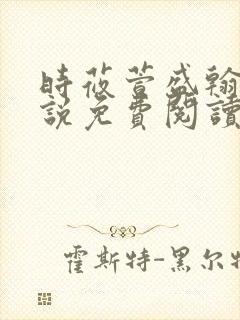 時莜萱盛翰
説免費閱讀
霍斯特-黑尔特